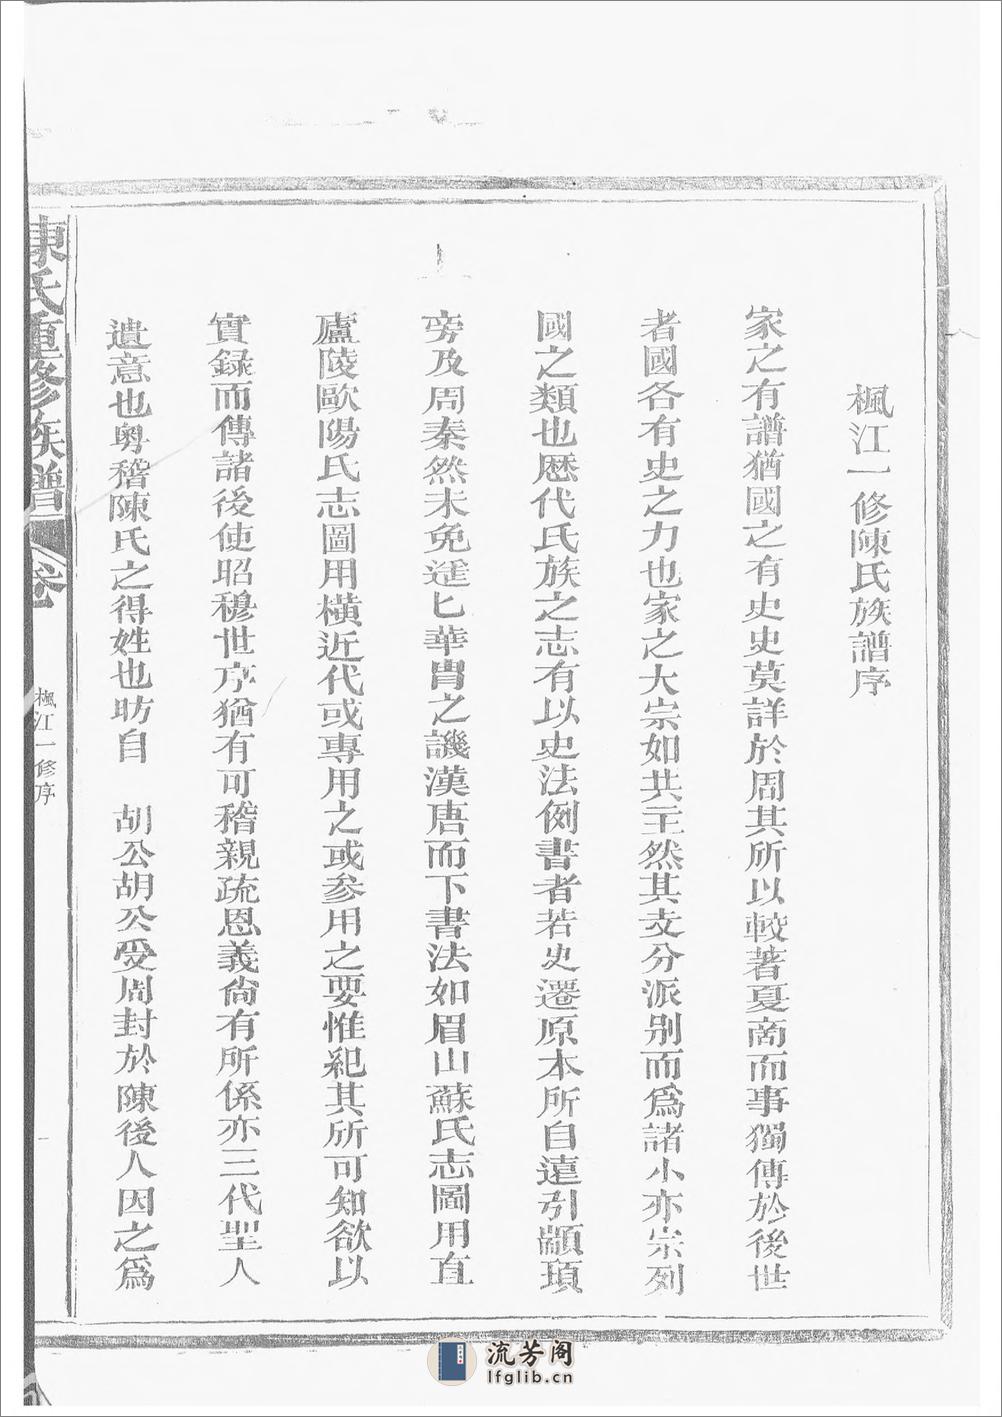 楓江一修陳氏族譜序
家之有譜猶國之有史史莫詳於周其所以較著夏商而事獨傳於後世
者國各有史之力也家之大宗如共主然其支分派别而為諸小亦宗列
國之類也歷代氏族之志有以史法例書者若史遷原本所自遠引顓頊
旁及周秦然未免遥匕華胄之譏漢唐而下書法如眉山蘇氏志圖用直
廬陵歐陽氏志圖用橫近代或專用之或參用之要惟紀其所可知欲以
實録而傳諸後使昭穆世序猶有可稽親疏恩義尙有所係亦三代聖人
遺意也粤稽陳氏之得姓也昉自 胡公胡公受周封於陳後人因之爲
陳氏重修族譜
卷一
楓江一修序
流芳阁
lfglib.cn